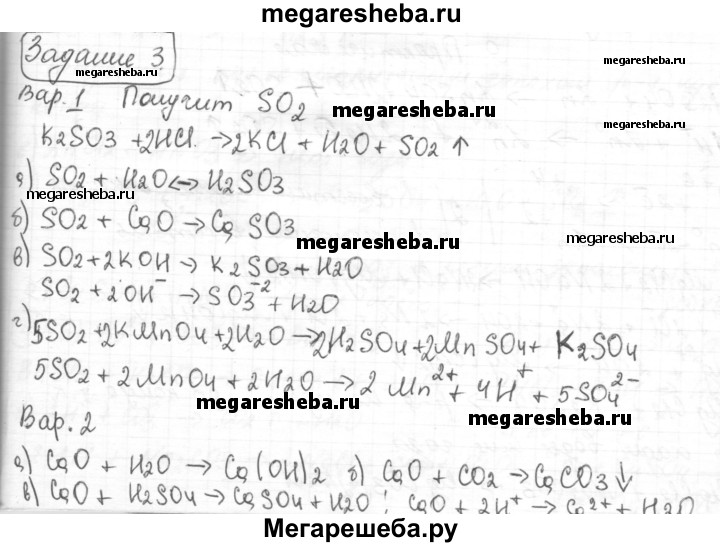 megaresheba.ru
Задание 3
megaresheba.ru
Вар.1 Получит SO2
megaresheba.ru
megaresheba.ru
K2SO3 + 2HCl → 2KCl + H2O + SO2 ↑
а) SO2 + H2O <-> H2SO3
megaresheba.ru
б) SO2 + CaO → CaSO3
megaresheba.ru
megaresheba.ru
в) SO2 + 2KOH → K2SO3 + H2O
SO2 + 2OH⁻ → SO3⁻² + H2O
г) 5SO2 + 2KMnO4 + 2H2O → 2H2SO4 + 2MnSO4 + K2SO4
5SO2 + 2MnO4 + 2H2O → 2Mn²⁺ + 4H⁺ + 5SO4²⁻
megaresheba.ru
megaresheba.ru
Вар. 2
а) CaO + H2O → Ca(OH)2 б) CaO + CO2 → CaCO3↓
в) CaO + H2SO4 → CaSO4 + H2O; CaO + 2H⁺ → Ca²⁺ + H2O
Мегарешеба.ру